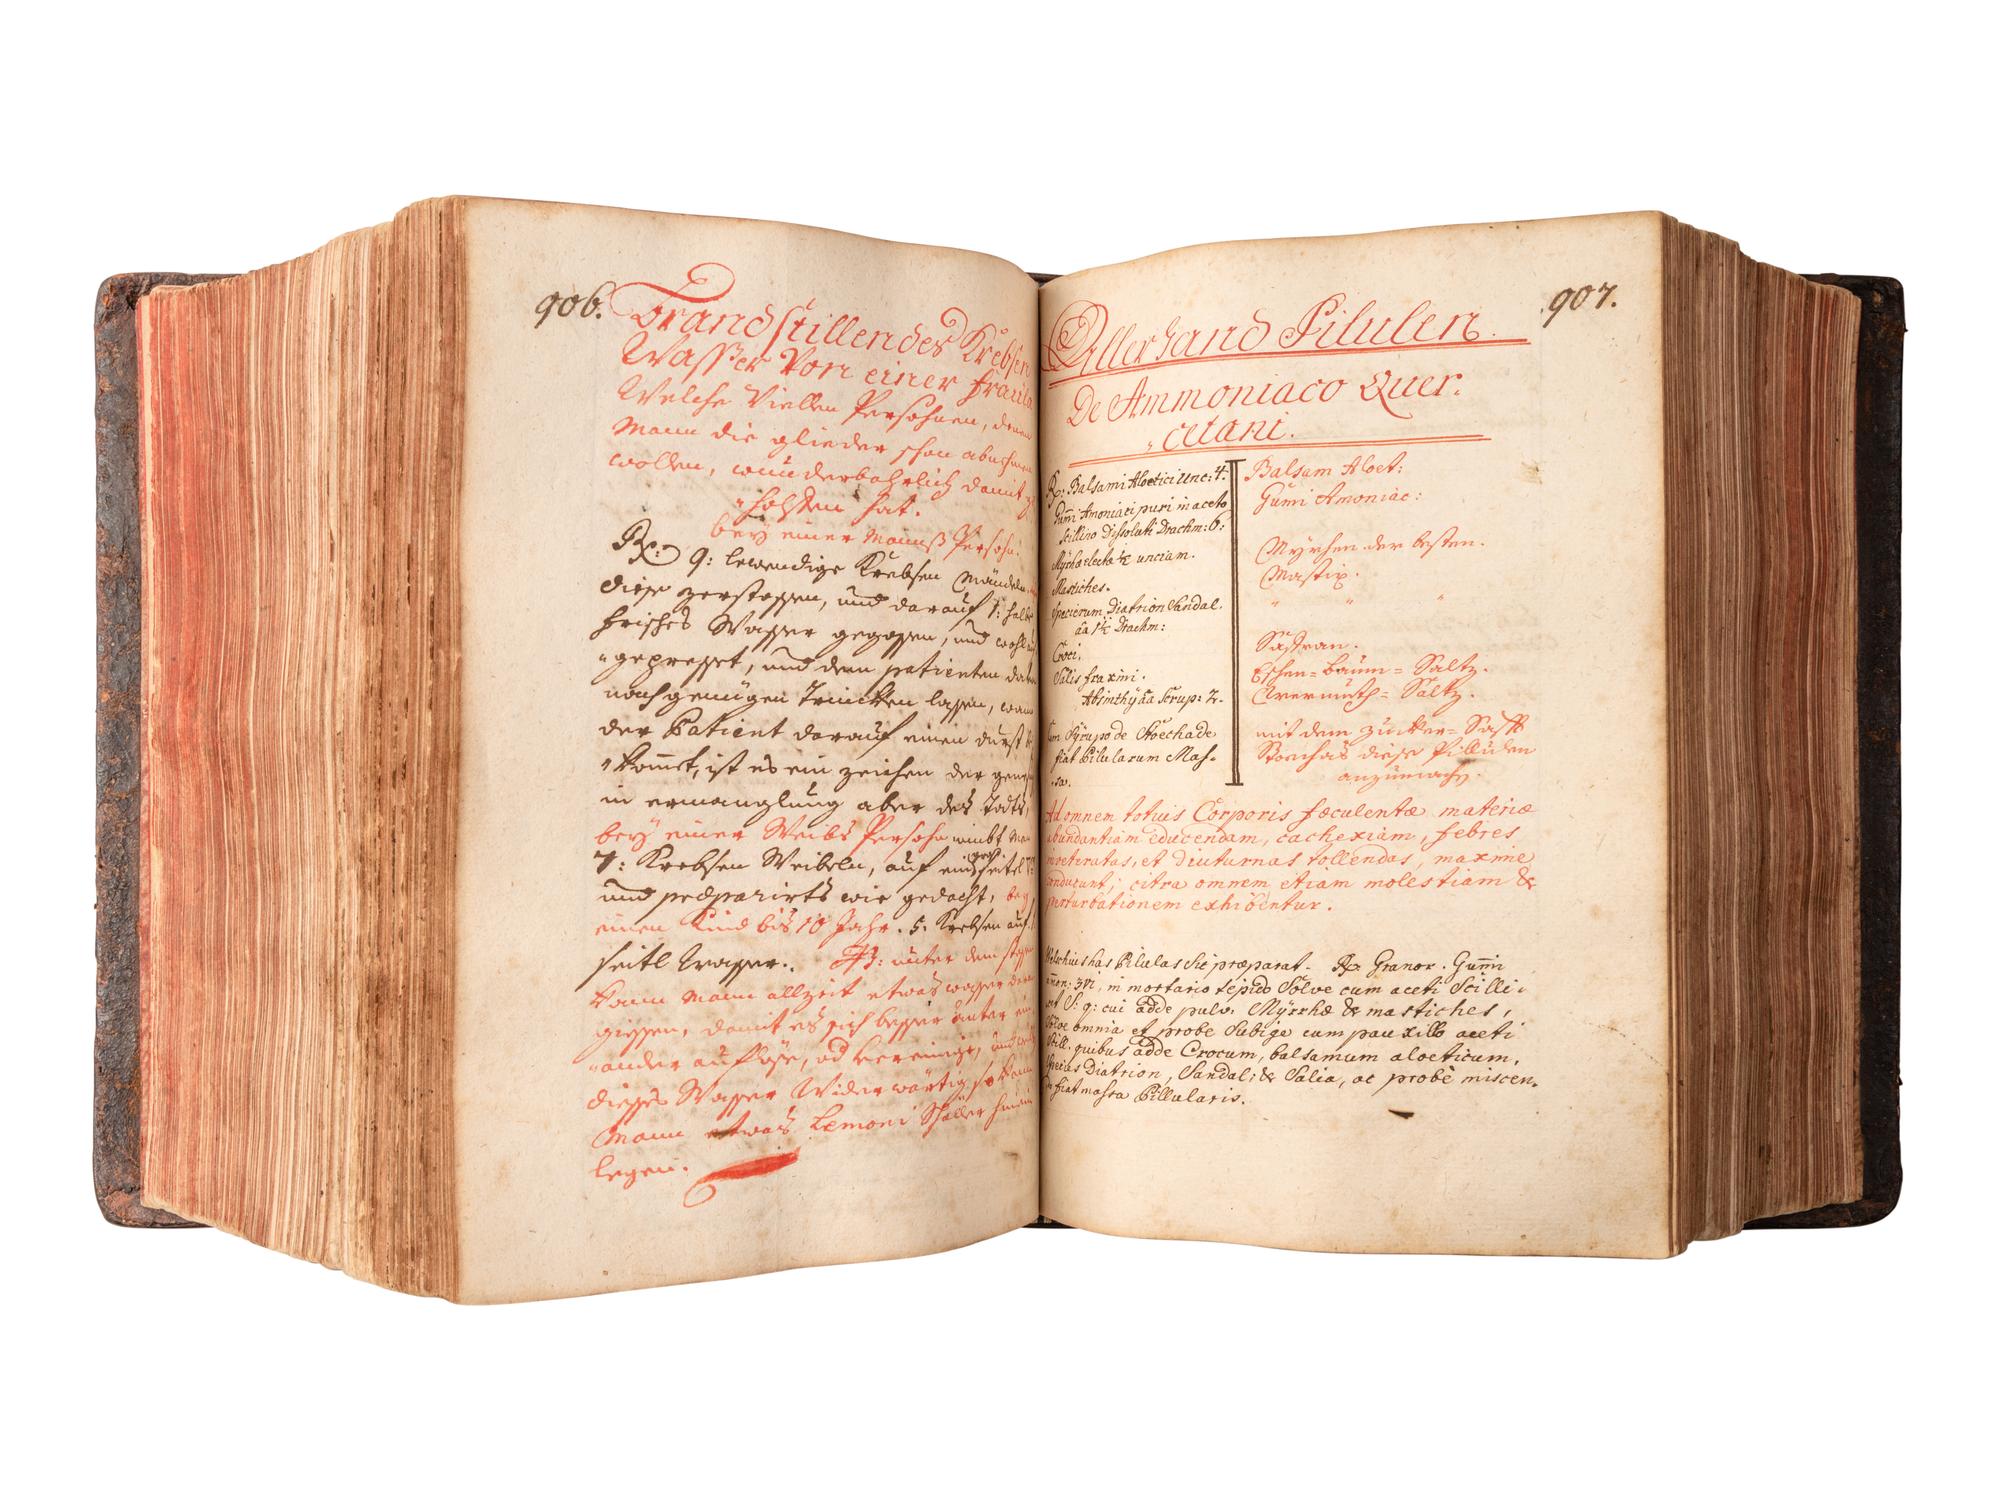 906.
Brandstillendes Krebsen
Wasser Von einer fraül
Welche Viellen Persohnen, denen
Mann die glieder schon abnehmen
wollen, wunderbahrlich damit
geholffen hat.
bey einer Manns Persohn.
Rx: 9: lewendige Krebsen Mändeln,
diese zerstossen, und darauf 1: halb
frisches Wasser gegossen, und wohl
gepresset, und dem patienten
nach genügen Trincken lassen, wann
der Patient darauf einen durst
kommet, ist es ein zeichen der
in ermanglung aber des Todts,
bey einer Weibs Persohn nimbt Man
7: Krebsen Weibeln, auf ein seitel
und præparirts wie gedacht, bey
einen Kind bis 10 Jahr. 5: Krebsen auf
seitl Wasser. NB: unter dem stossen
kann Mann allzeit etwas wasser daran
giessen, damit es sich besser unter ein
ander auflöse, od vereinige,
dieses Wasser Widerwärtig so kann
Mann etwas Lemoni Schäller hinein
legen.
907.
Allerhand Pilulen.
De Ammoniaco Quer-
cetani.
Rx: Balsami Aloetici Unc: 4.
Gum̃i Amoniaci puri in aceto
scillino Dissoluti Drachm: 6:
Myrhæ electæ ½ unciam.
Mastiches.
Specierum Diatrion Sandal.
āā 1½ Drachm:
Croci.
Salis fraxini.
Absinthÿ āā Scrup: 2.
Cum Syrupo de Stoechade
fiat Pilularum Mas-
sa.
Balsam Aloet:
Gum̃i Amoniac:
Myrhen der besten.
Mastix.
" " "
Saffran.
Eschen=baum=Saltz.
Wermuth=Saltz.
mit dem zucker=Safft
Stoechas diese Pilulen
anzumachen.
Ad omnem totius Corporis fæculentæ materiæ
abundantiam educendam, cachexiam, febres
inveteratas, et diuturnas tollendas, maxime
conducunt; citra omnem etiam molestiam &
perturbationem exhibentur.
has Pilulas sic præparat. Rx Granor. Gum̃i
amon: ʒvi, in mortario tepido Solve cum aceti Scilli:
S: q: cui adde pulv. Myrrhæ & mastiches,
Solve omnia et probe Subige cum pauxillo aceti
Scill. quibus adde Crocum, balsamum aloeticum,
Species Diatrion, Sandal: & Salia, ac probe miscen.
fiat massa Pillularis.